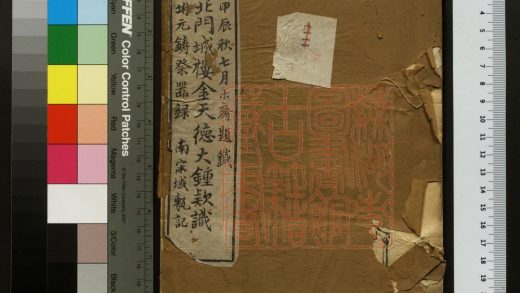 甲辰秋七月木齋題籤
北門城樓金天德大鍾欵識
坿元鑄祭器録 南宋城甎記
FFEN Color Control Patches
Green
Yellow
Red
Magenta
White
3/Color
Black
4
5
6
7
8
9
10
11
12
13
14
15
16
17
18
19